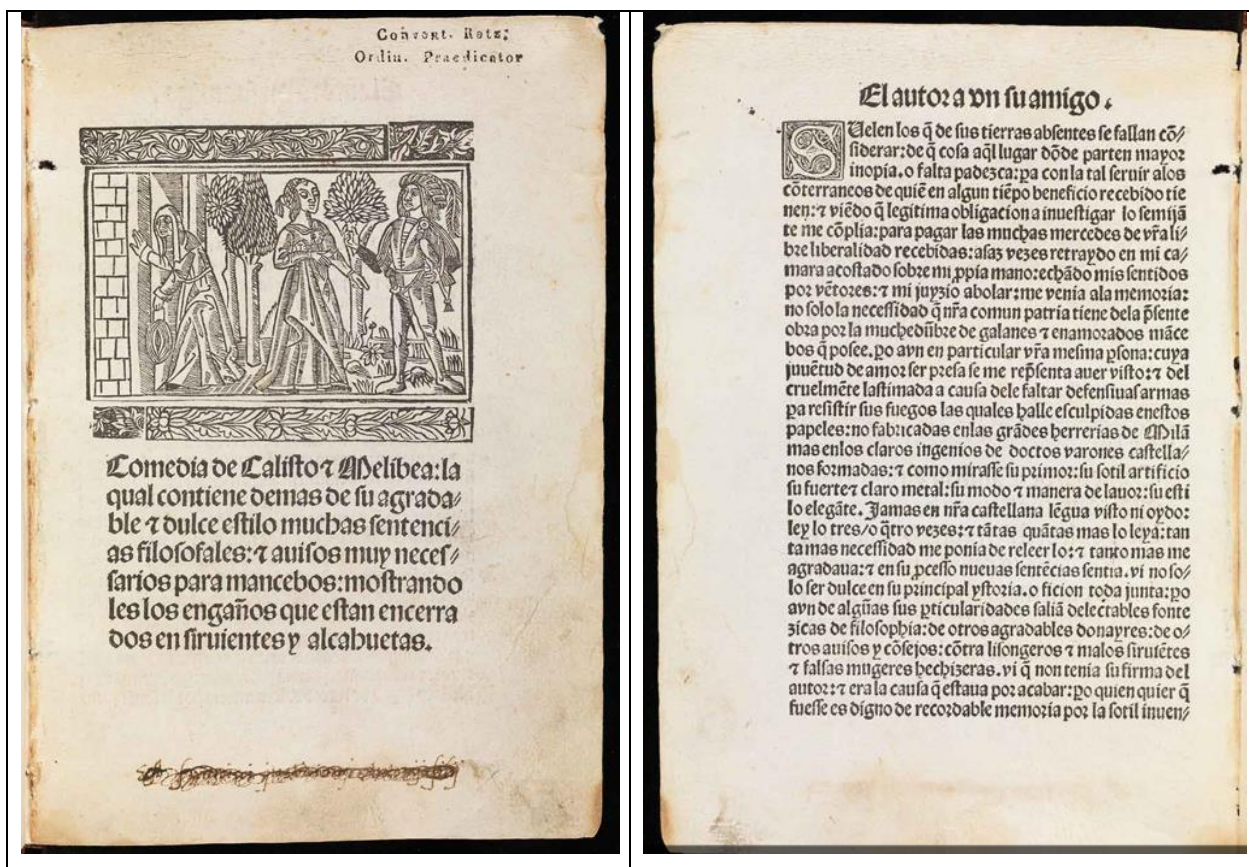 Convent. Retz;
Ordin. Praedicator
Comedia de Calisto ⁊ Melibea: la
qual contiene demas de su agrada/
ble ⁊ dulce estilo muchas sentenci/
as filosofales: ⁊ auisos muy neces/
sarios para mancebos: mostrando
les los engaños que estan encerra
dos en siruientes y alcahuetas.
El autor a vn su amigo.
Suelen los q̃ de sus tierras absentes se fallan cõ/
siderar: de q̃ cosa aq̃l lugar dõde parten mayor
inopia. o falta padezca: pa con la tal seruir alos
cõterraneos de quiẽ en algun tiẽpo beneficio recebido tie
nen: ⁊ viẽdo q̃ legitima obligacion a inuestigar lo semijã
te me cõplia: para pagar las muchas mercedes de vr̃a li/
bre liberalidad recebidas: asaz vezes retraydo en mi ca/
mara acostado sobre mi ꝓpia mano: echãdo mis sentidos
por vẽtores: ⁊ mi juyzio a bolar: me venia ala memoria:
no solo la necessidad q̃ nr̃a comun patria tiene dela p̃sente
obra por la muchedũbre de galanes ⁊ enamorados mãce
bos q̃ posee. ꝑo avn en particular vr̃a mesma ꝑsona: cuya
juuẽtud de amor ser presa se me rep̃senta auer visto: ⁊ del
cruelmẽte lastimada a causa de le faltar defensiuas armas
ꝑa resistir sus fuegos las quales halle esculpidas enestos
papeles: no fabricadas enlas grãdes herrerias de Milã
mas enlos claros ingenios de doctos varones castella/
nos formadas: ⁊ como mirasse su primor: su sotil artificio
su fuerte ⁊ claro metal: su modo ⁊ manera de lauor: su esti
lo elegãte. Jamas en nr̃a castellana lẽgua visto ni oydo:
ley lo tres/ o q̃tro vezes: ⁊ tãtas quãtas mas lo leya: tan
ta mas necessidad me ponia de releer lo: ⁊ tanto mas me
agradaua: ⁊ en su ꝓcesso nueuas sentẽcias sentia. vi no so/
lo ser dulce en su principal ystoria. o ficion toda junta: ꝑo
avn de algũas sus ꝑticularidades saliã delectables fonte
zicas de filosophia: de otros agradables donayres: de o/
tros auisos y cõsejos: cõtra lisongeros ⁊ malos siruiẽtes
⁊ falsas mugeres hechizeras. vi q̃ non tenia su firma del
autor: ⁊ era la causa q̃ estaua por acabar: ꝑo quien quier q̃
fuesse es digno de recordable memoria por la sotil inuen/